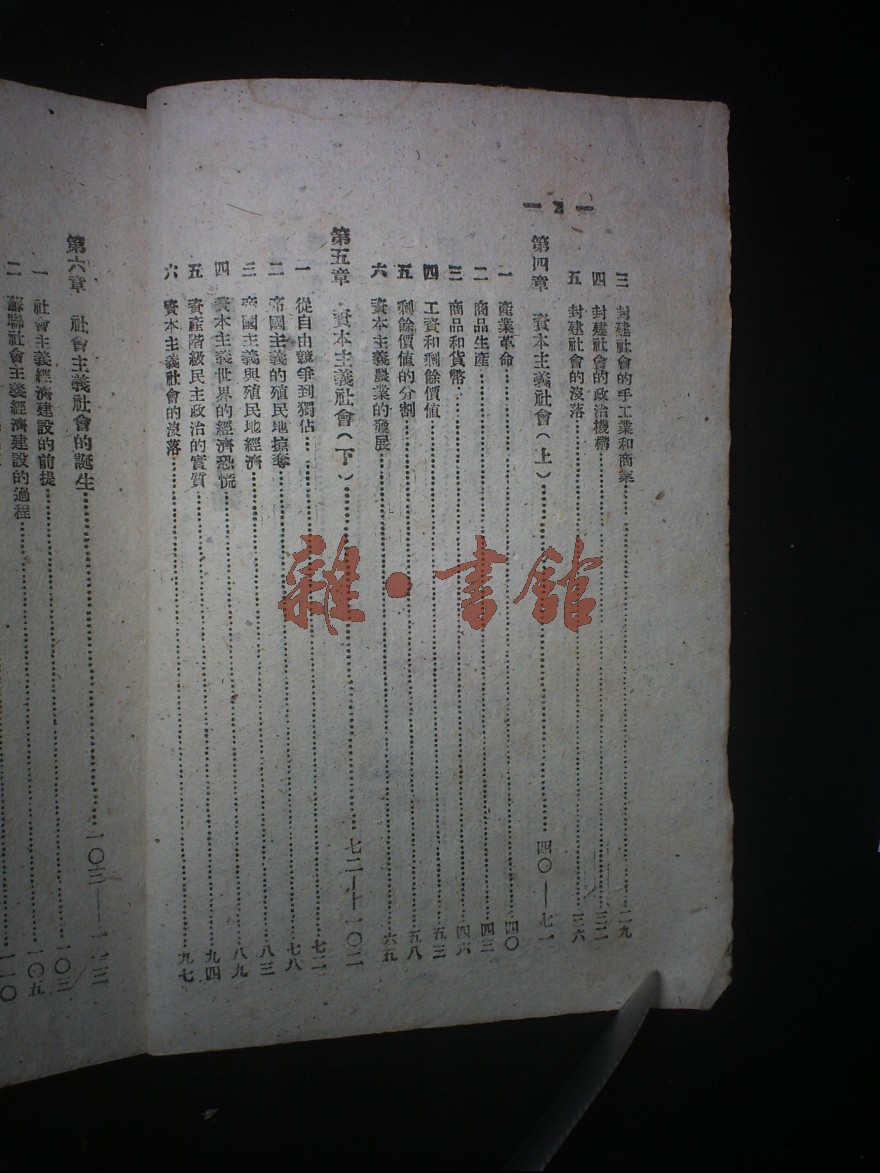 — 2 —
三 封建社會的手工業和商業……二九
四 封建社會的政治機構……三二
五 封建社會的沒落……三六
第四章 資本主義社會(上)……四〇—七一
一 產業革命……四〇
二 商品生產……四三
三 商品和貨幣……四六
四 工資和剩餘價值……五三
五 剩餘價値的分割……五八
六 資本主義農業的發展……六五
第五章 資本主義社會(下)……七二—一〇二
一 從自由競爭到獨佔……七二
二 帝國主義的殖民地掠奪……七八
三 帝國主義與殖民地經濟……八三
四 資本主義世界的經濟恐慌……八九
五 資產階級民主政治的實質……九四
六 資本主義社會的沒落……九七
第六章 社會主義社會的誕生……一〇三—
一 社會主義經濟建設的前提……一〇三
二 蘇聯社會主義經濟建設的過程……一〇五
一一〇
雜·書館